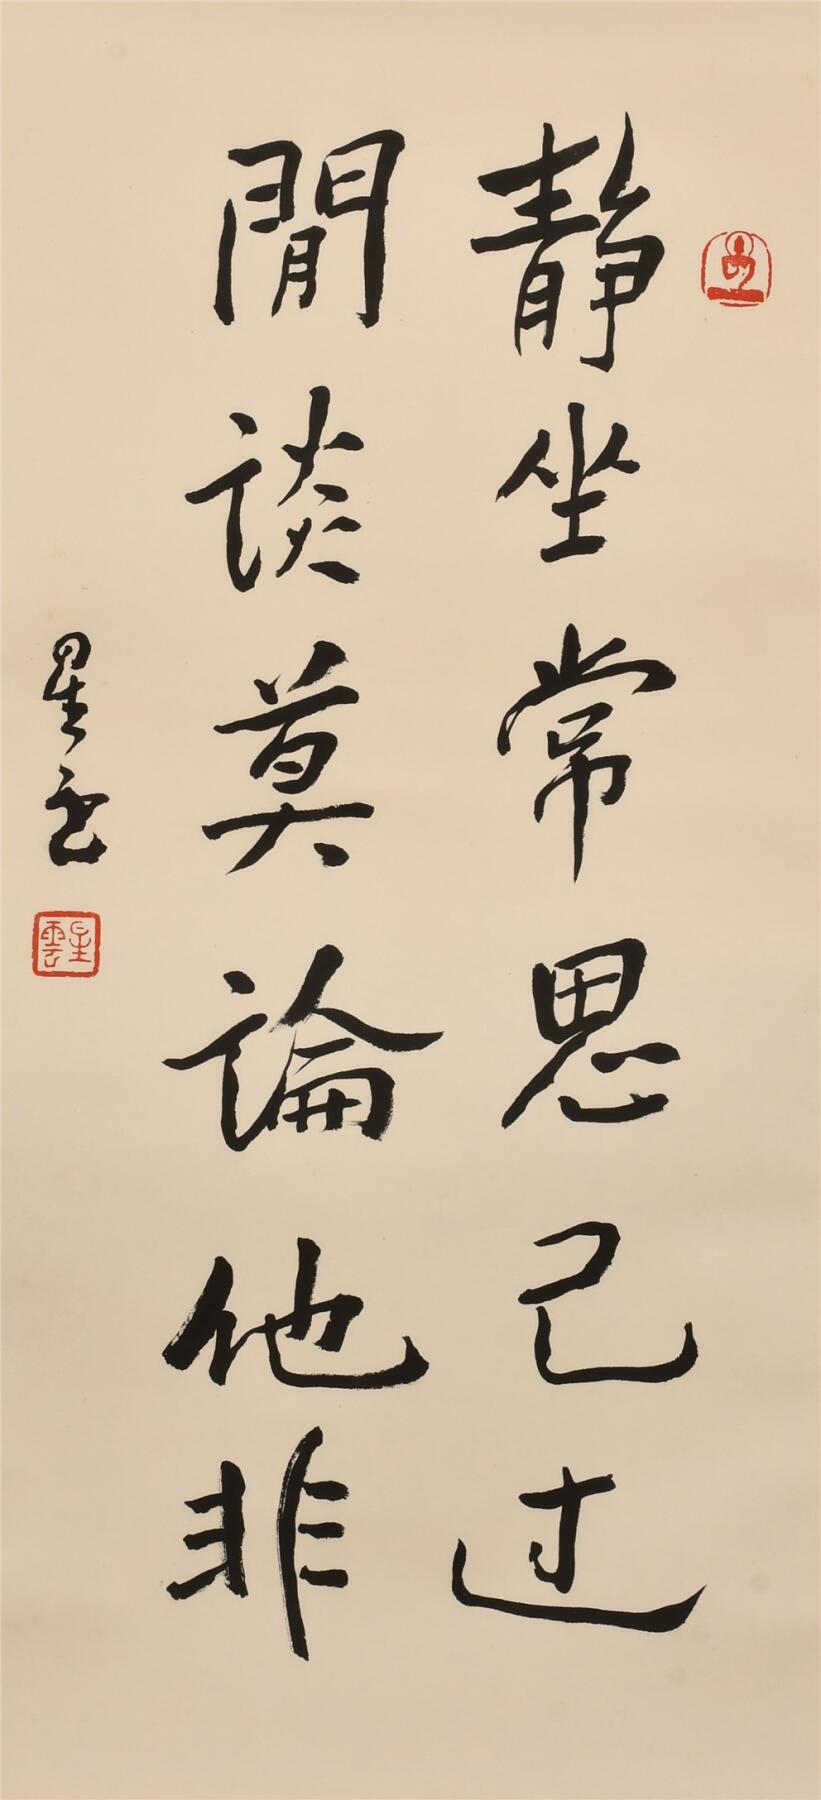 静坐常思己过
閒談莫論他非
星云
星雲